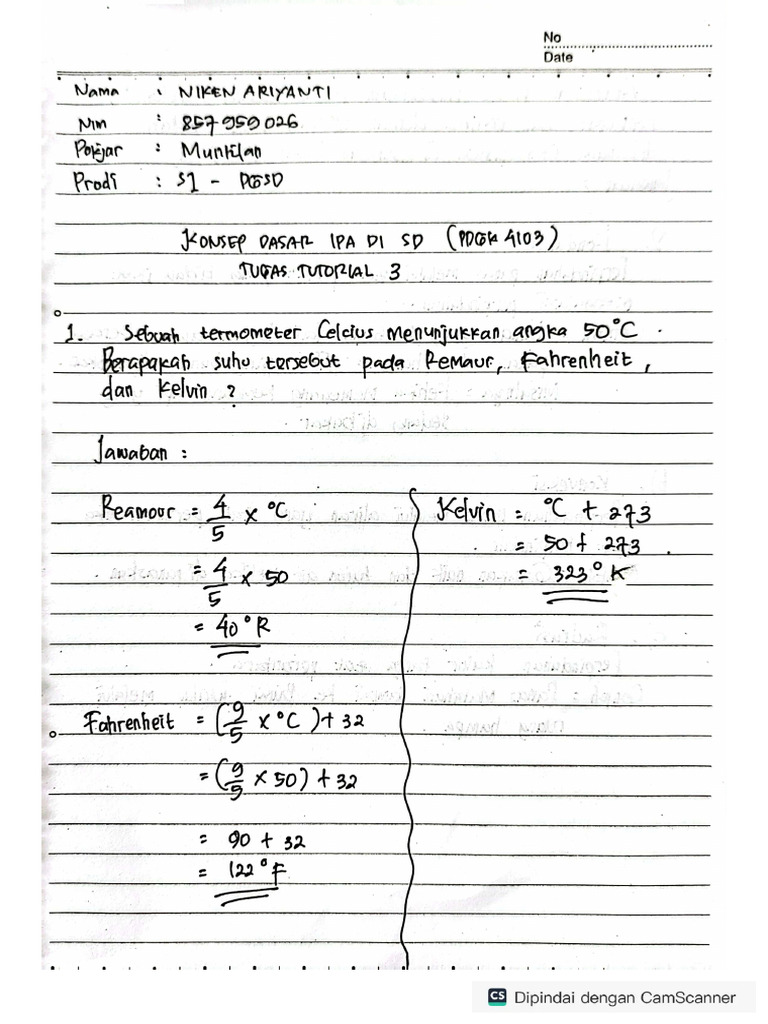 No
Date
Nama : NIKEN ARIYANTI
Nim : 857959026
Pokjar : Muntilan
Prodi : S1 - PGSD
KONSEP DASAR IPA DI SD (PDGK 4103)
TUGAS TUTORIAL 3
1. Sebuah termometer Celcius menunjukkan angka 50°C.
Berapakah suhu tersebut pada Remaur, Fahrenheit,
dan Kelvin?
Jawaban :
Reamour = 4/5 x °C
= 4/5 x 50
= 40°R
Fahrenheit = (9/5 x °C) + 32
= (9/5 x 50) + 32
= 90 + 32
= 122°F
Kelvin = °C + 273
= 50 + 273
= 323°K
CS Dipindai dengan CamScanner